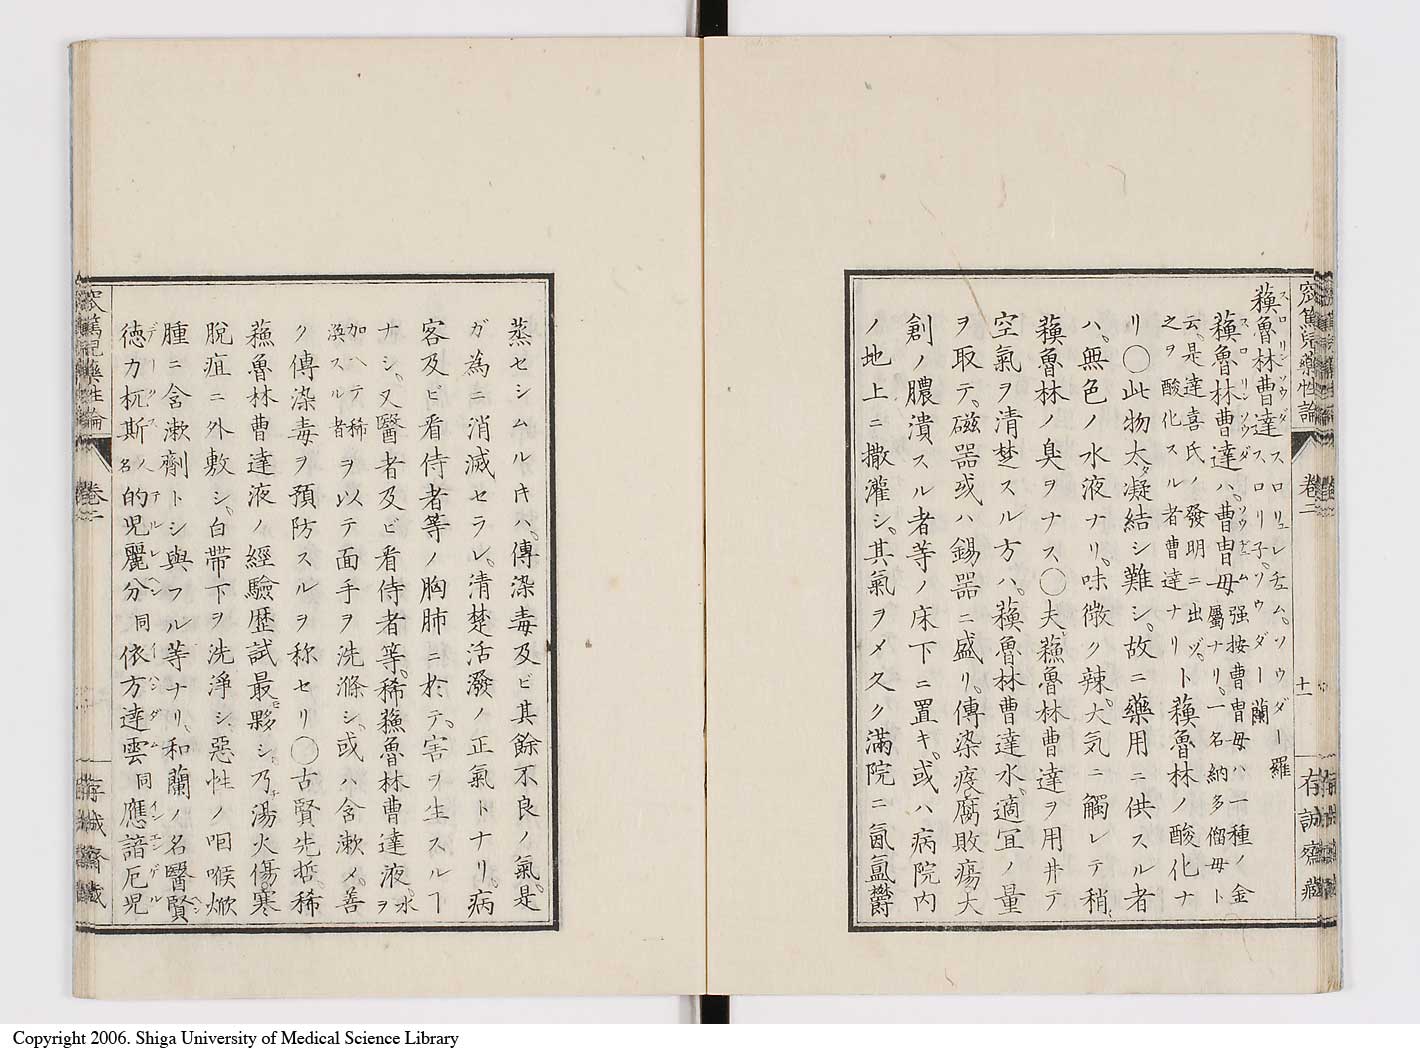 窊篤兒藥性論 卷二 十一 存誠齋藏
蘓魯林曹達 スロリュレ〓ム。ソウダー 羅 スロリ子。ソウダー 蘭
蘓魯林曹達ハ。曹曺母 强按曹曺母ハ一種ノ金屬ナリ。一名納多僧母ト云。是達喜氏ノ發明ニ出ヅ。之ヲ酸化スル者曹達ナリ ト蘓魯林ノ酸化ナ
リ〇此物太凝結シ難シ。故ニ藥用ニ供スル者
ハ。無色ノ水液ナリ。味微ク辣。大気ニ觸レテ稍
蘓魯林ノ臭ヲナス〇夫蘓魯林曹達ヲ用井テ
空氣ヲ清楚スル方ハ。蘓魯林曹達水。適宜ノ量
ヲ取テ。磁器或ハ錫器ニ盛リ。傳染疫腐敗瘍大
創ノ膿潰スル者等ノ床下ニ置キ。或ハ病院内
ノ地上ニ撒灌シ。其氣ヲメ久ク滿院ニ氤氳欝
蒸セシムル𪜈ハ。傳染毒及ビ其餘不良ノ氣。是
ガ為ニ消滅セラレ。清楚活潑ノ正氣トナリ。病
客及ビ看侍者等ノ胸肺ニ於テ。害ヲ生スルヿ
ナシ。又醫者及ビ看侍者等。稀蘓魯林曹達液。水ヲ加ヘテ稀渙スル者
ヲ以テ面手ヲ洗滌シ。或ハ含漱メ。善
ク傳染毒ヲ預防スルヲ称セリ〇古賢先哲。稀
蘓魯林曹達液ノ經驗歷試最夥シ。乃湯火傷。寒
脫疽ニ外敷シ。白帶下ヲ洗淨シ。惡性ノ咽喉焮
腫ニ含漱劑トシ與フル等ナリ。和蘭ノ名醫賢
徳力杭斯 人名 的児麗分 同 依方達雲 同 應諳厄児
窊篤兒藥性論 卷二 存誠齋藏
Copyright 2006. Shiga University of Medical Science Library